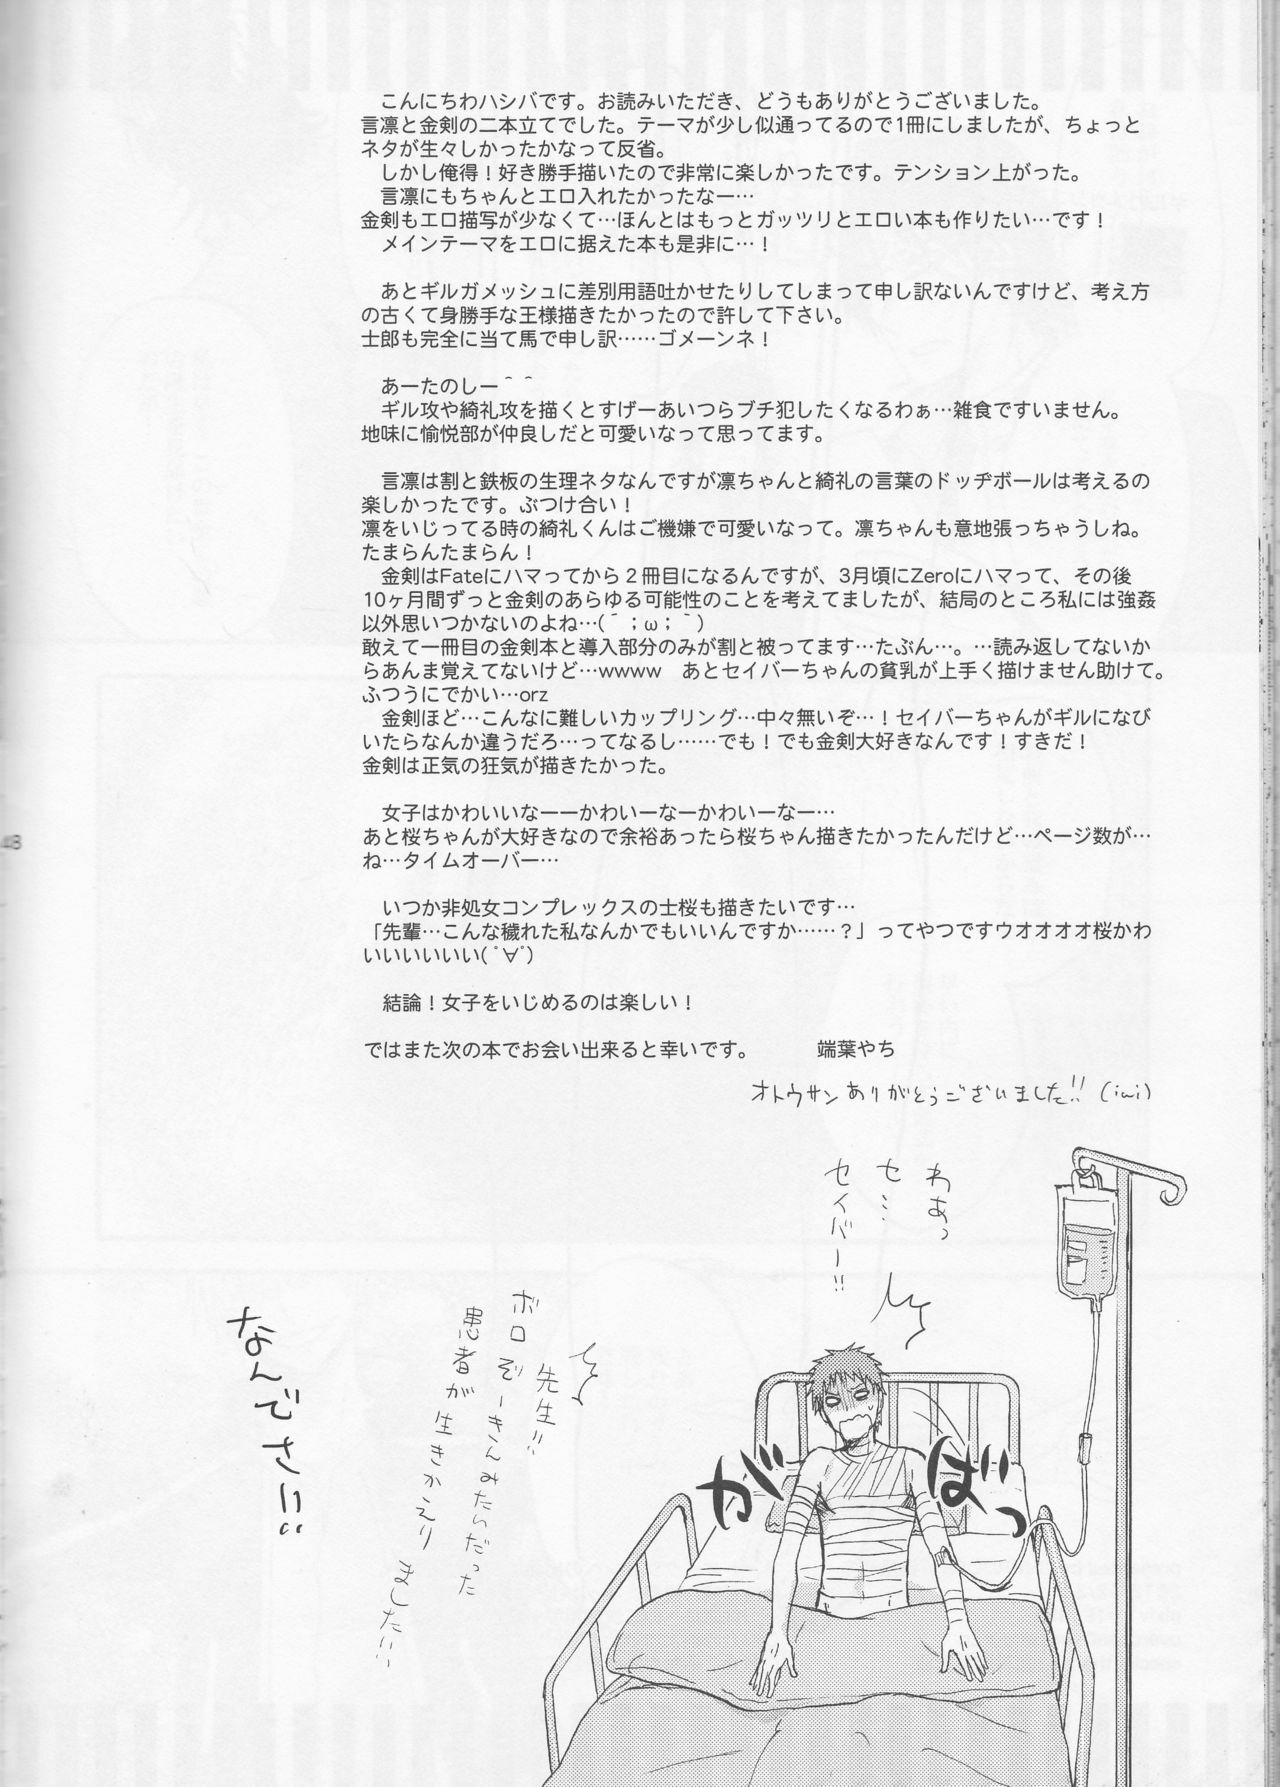 こんにちわハシバです。お読みいただき、どうもありがとうございました。
言凛と金剣の二本立てでした。テーマが少し似通ってるので1冊にしましたが、ちょっと
ネタが生々しかったかなって反省。
しかし俺得！好き勝手描いたので非常に楽しかったです。テンション上がった。
言凛にもちゃんとエロ入れたかったなー…
金剣もエロ描写が少なくて…ほんとはもっとガッツリとエロい本も作りたい…です！
メインテーマをエロに据えた本も是非に…！
あとギルガメッシュに差別用語吐かせたりしてしまって申し訳ないんですけど、考え方
の古くて身勝手な王様描きたかったので許して下さい。
士郎も完全に当て馬で申し訳……ゴメーンネ！
あーたのしー＾＾
ギル攻や綺礼攻を描くとすげーあいつらブチ犯したくなるわぁ…雑食ですいません。
地味に愉悦部が仲良しだと可愛いなって思ってます。
言凛は割と鉄板の生理ネタなんですが凛ちゃんと綺礼の言葉のドッヂボールは考えるの
楽しかったです。ぶつけ合い！
凛をいじってる時の綺礼くんはご機嫌で可愛いなって。凛ちゃんも意地張っちゃうしね。
たまらんたまらん！
金剣はFateにハマってから２冊目になるんですが、3月頃にZeroにハマって、その後
10ヶ月間ずっと金剣のあらゆる可能性のことを考えてましたが、結局のところ私には強姦
以外思いつかないのよね…(´；ω；｀)
敢えて一冊目の金剣本と導入部分のみが割と被ってます…たぶん…。…読み返してないか
らあんま覚えてないけど…wwww　あとセイバーちゃんの貧乳が上手く描けません助けて。
ふつうにでかい…orz
金剣ほど…こんなに難しいカップリング…中々無いぞ…！セイバーちゃんがギルになび
いたらなんか違うだろ…ってなるし……でも！でも金剣大好きなんです！すきだ！
金剣は正気の狂気が描きたかった。
女子はかわいいなーーかわいーなーかわいーなー…
あと桜ちゃんが大好きなので余裕あったら桜ちゃん描きたかったんだけど…ページ数が…
ね…タイムオーバー…
いつか非処女コンプレックスの士桜も描きたいです…
「先輩…こんな穢れた私なんかでもいいんですか……？」ってやつですウオオオオ桜かわ
いいいいいい(ﾟ∀ﾟ)
結論！女子をいじめるのは楽しい！
ではまた次の本でお会い出来ると幸いです。　　　端葉やち
オトウサンありがとうございました!! (iwi)
わあっ
セ…
セイバー!!
がばっ
先生!!
ボロぞーきんみたいだった
患者が生きかえりました!!
なんでさ!!